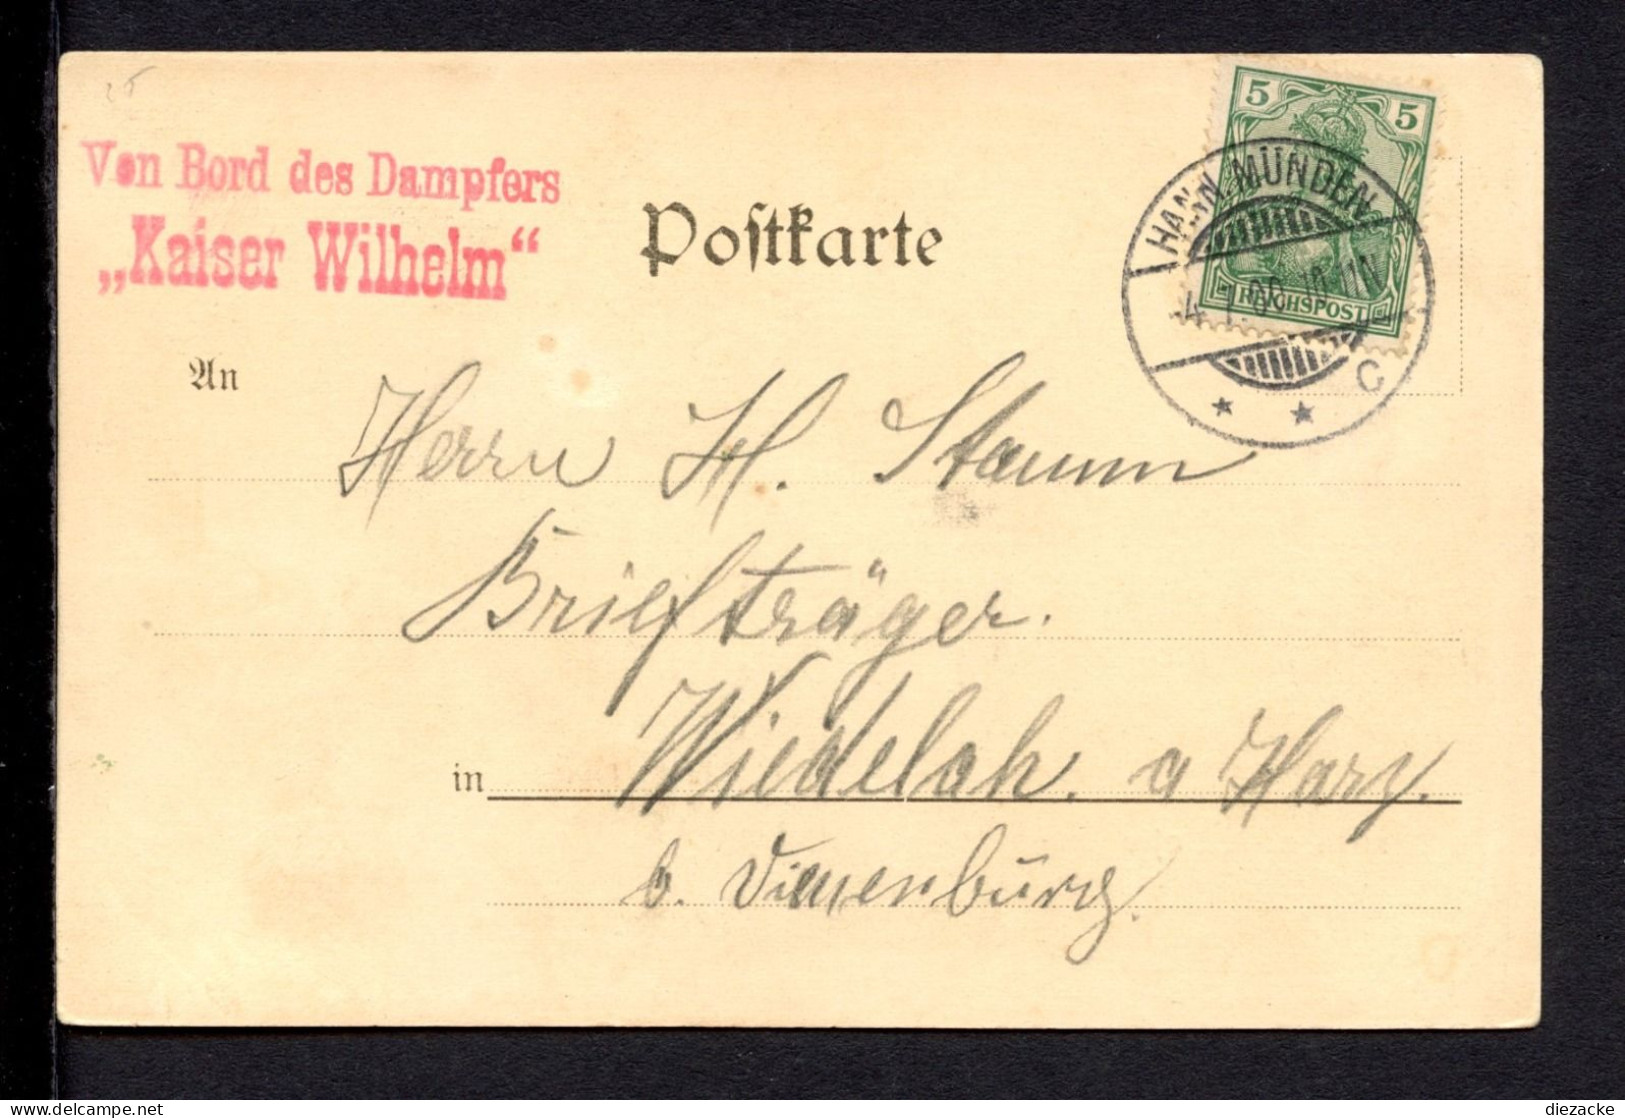 Von Bord des Dampfers
„Kaiser Wilhelm“
Postkarte
5 5
REICHSPOST
HANN. MÜNDEN
C
An
Herrn H. Stamm
Briefträger.
in Wiedelah. a Harz.
b. Vienenburg.
diezacke